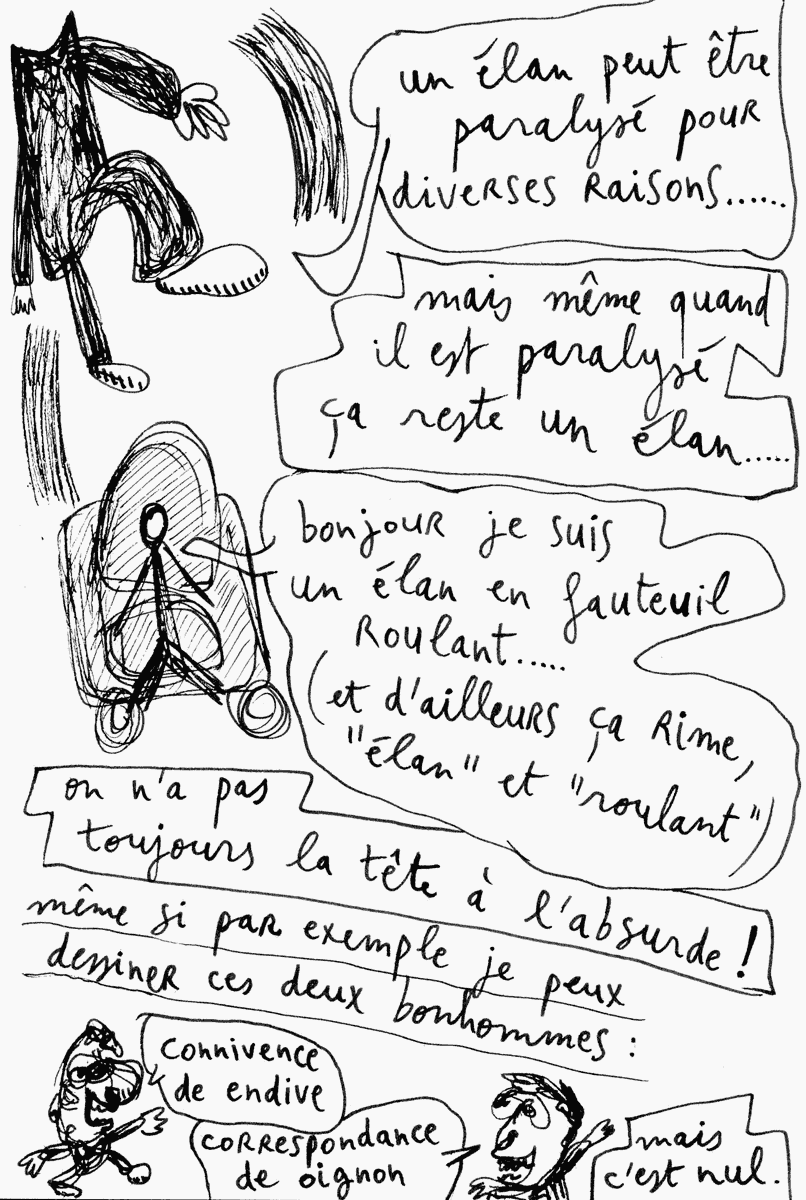 un élan peut être
paralysé pour
diverses raisons......
mais même quand
il est paralysé
ça reste un élan.....
bonjour je suis
un élan en fauteuil
roulant.....
(et d'ailleurs ça rime,
"élan" et "roulant")
on n'a pas
toujours la tête à l'absurde !
même si par exemple je peux
dessiner ces deux bonhommes :
connivence
de endive
correspondance
de oignon
mais
c'est nul.